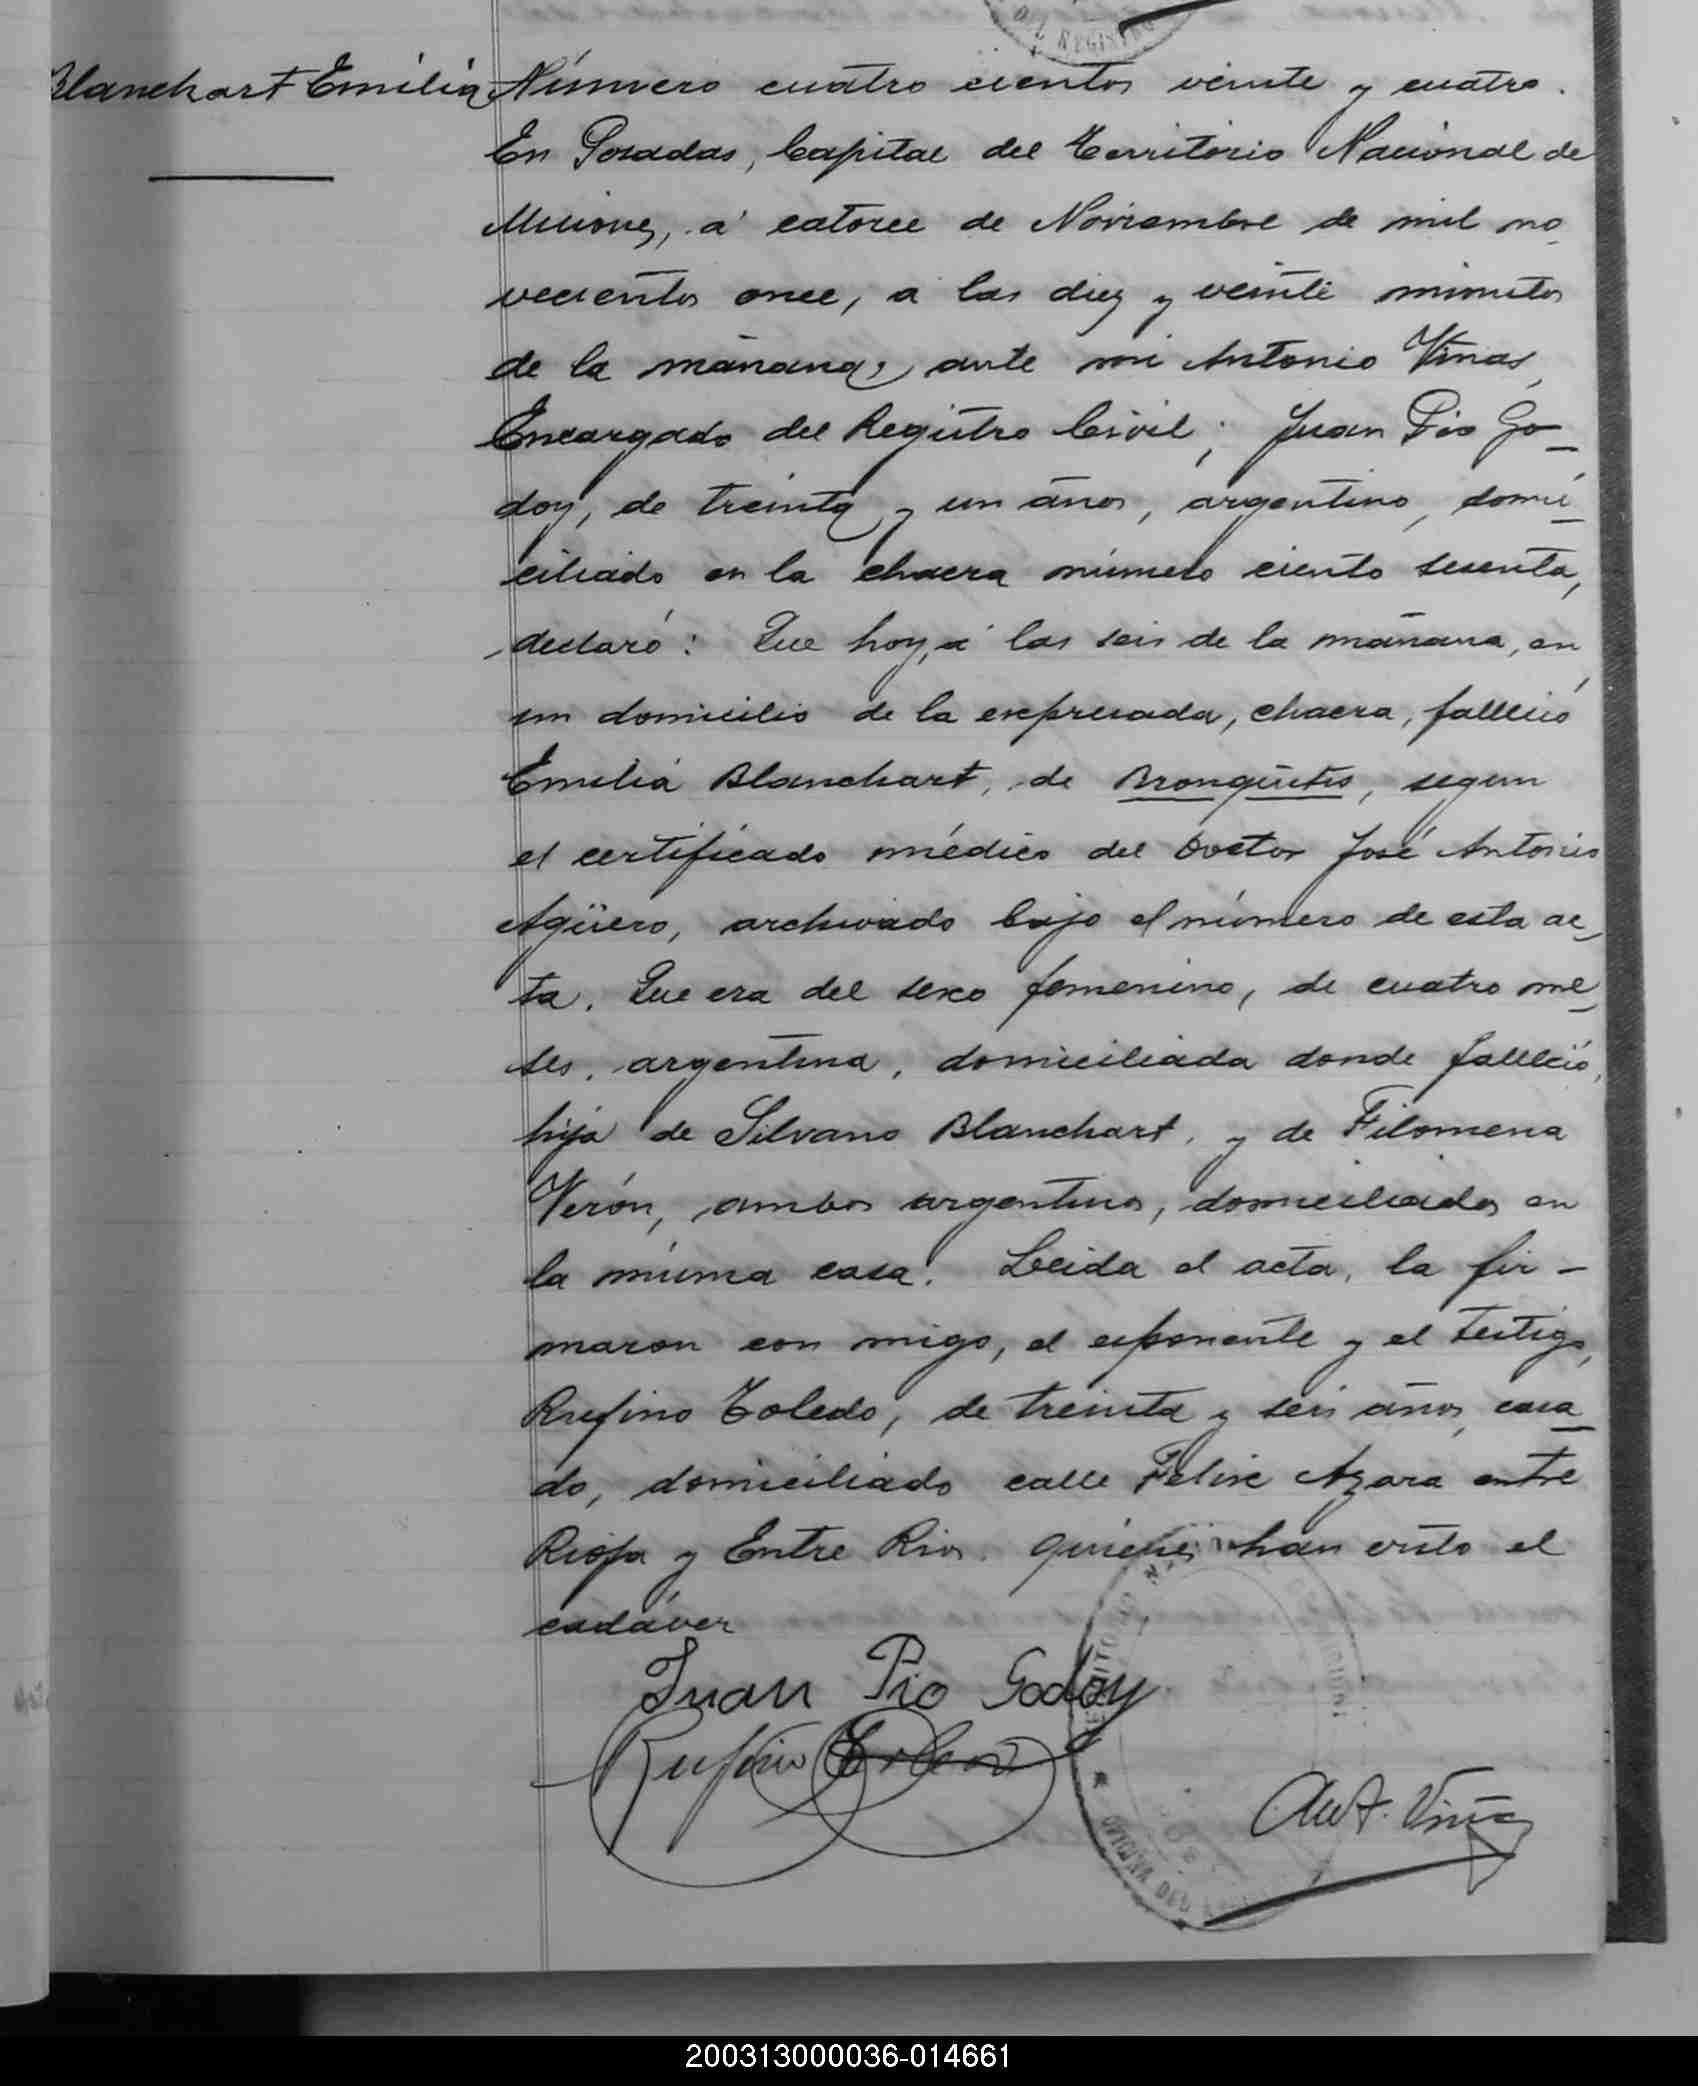 DEL REGISTRO
Blanchart Emilia
Número cuatro cientos veinte y cuatro.
En Posadas, Capital del Territorio Nacional de
Misiones, á catorce de Noviembre de mil no
vecientos once, a las diez y veinte minutos
de la mañana, ante mi Antonio Viñas,
Encargado del Registro Civil; Juan Pio Go-
doy, de treinta y un años, argentino, domi-
ciliado en la chacra número ciento sesenta,
declaró: Que hoy, á las seis de la mañana, en
un domicilio de la expresada, chacra, falleció
Emilia Blanchart, de Bronquitis, segun
el certificado médico del Doctor José Antonio
Agüero, archivado bajo el número de esta ac-
ta. Que era del sexo femenino, de cuatro me-
ses, argentina, domiciliada donde falleció,
hija de Silvano Blanchart, y de Filomena
Verón, ambos argentinos, domiciliados en
la misma casa. Leida el acta, la fir-
maron con migo, el exponente y el testigo,
Rufino Toledo, de treinta y seis años, casa-
do, domiciliado calle Felix Azara entre
Rioja y Entre Rios. quienes han visto el
cadáver
Juan Pio Godoy
Rufino Toledo
Ant. Viñas
200313000036-014661